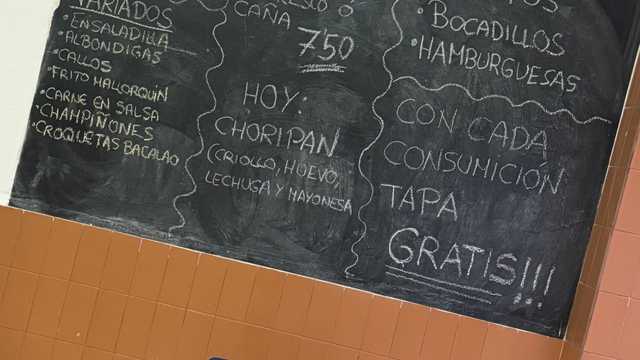 VARIADOS
• ENSALADILLA
• ALBONDIGAS
• CALLOS
• FRITO MALLORQUÍN
• CARNE EN SALSA
• CHAMPIÑONES
• CROQUETAS BACALAO
CAÑA
7'50
HOY:
CHORIPAN
(CRIOLLO, HUEVO,
LECHUGA Y MAYONESA
• BOCADILLOS
• HAMBURGUESAS
CON CADA
CONSUMICIÓN
TAPA
GRATIS!!!